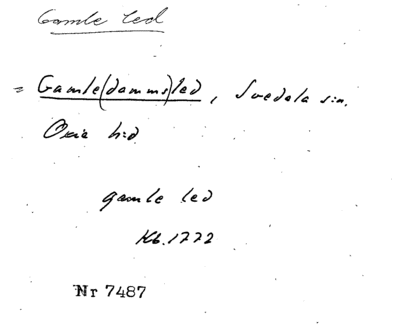 Gamle led
= Gamle(damms)led, Svedala sn.
Oxie hd
gamle led
Kb. 1772
Nr 7487